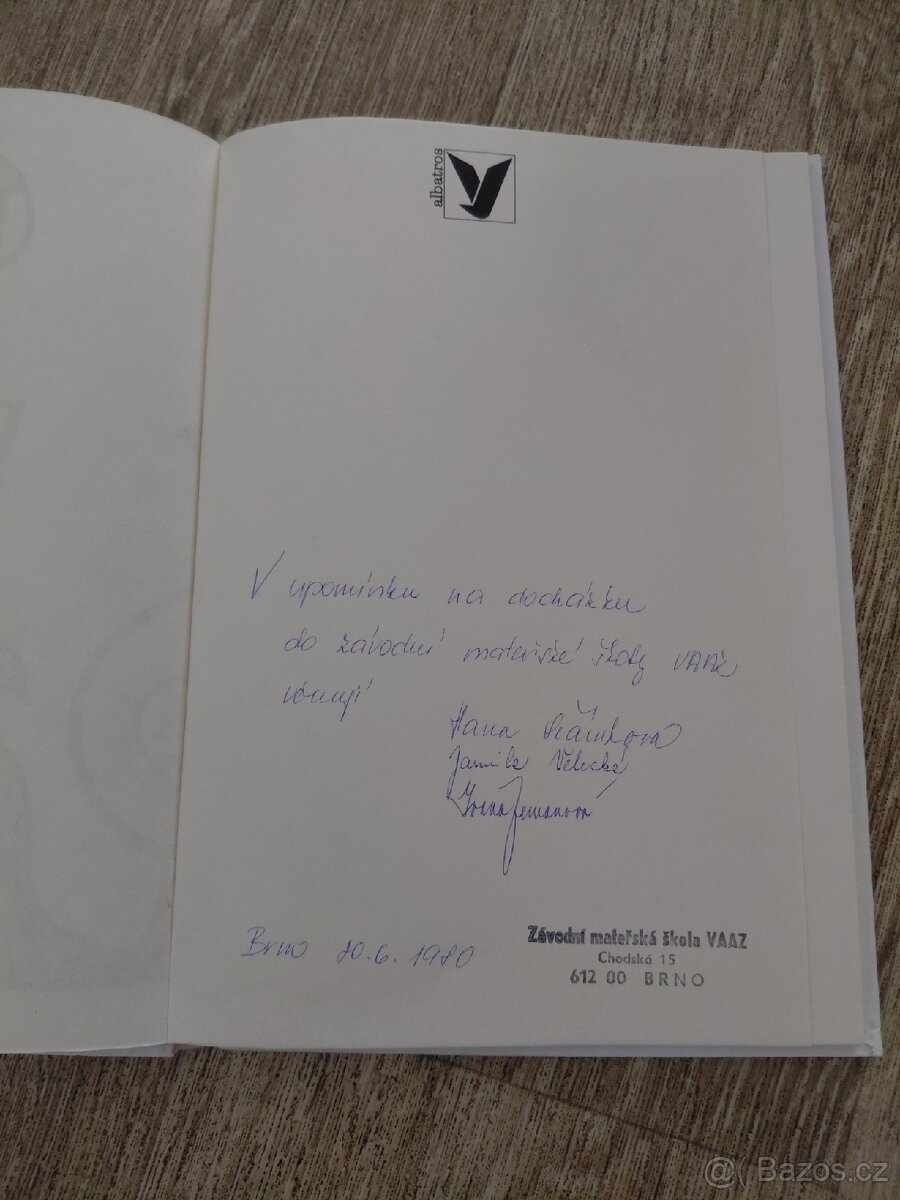 albatros
V upomínku na docházku
do závodní mateřské školy VAAZ
věnují
Hana
Jarmila Velecká
Ivana Zemanová
Brno 6. 1980
Závodní mateřská škola VAAZ
Chodská 15
612 00 BRNO
@( Bazos.cz